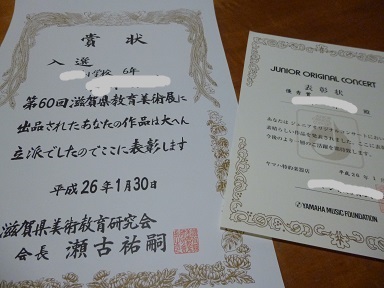 賞状
入選
小学校 6年
第60回滋賀県教育美術展に
出品されたあなたの作品は大へん
立派でしたのでここに表彰します
平成26年1月30日
滋賀県美術教育研究会
会長 瀬古祐嗣
JUNIOR ORIGINAL CONCERT
表彰状
優秀賞
あなたはジュニアオリジナルコンサートにおいて
ヤマハ特約楽器店
YAMAHA MUSIC FOUNDATION